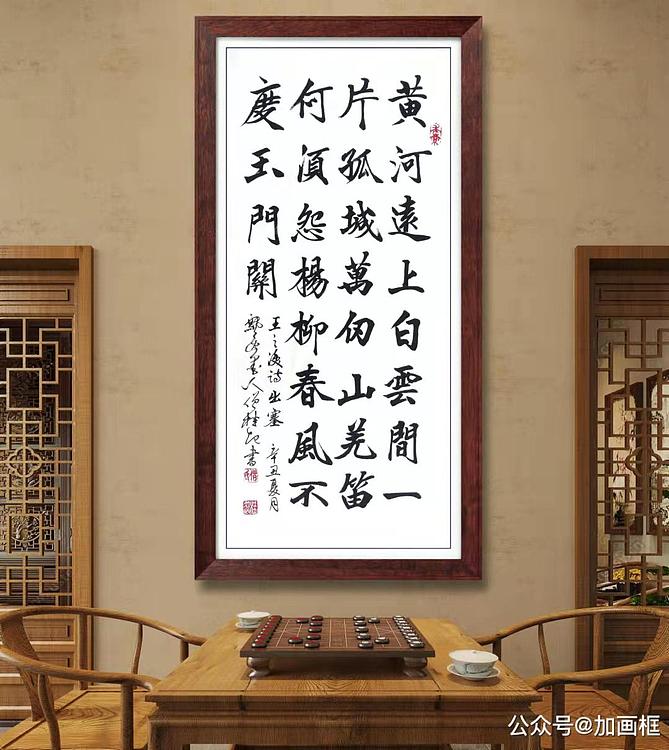 黄河遠上白雲間一
片孤城萬仞山羌笛
何須怨楊柳春風不
度玉門關
王之渙詩出塞 辛丑夏月
書
公众号@加画框